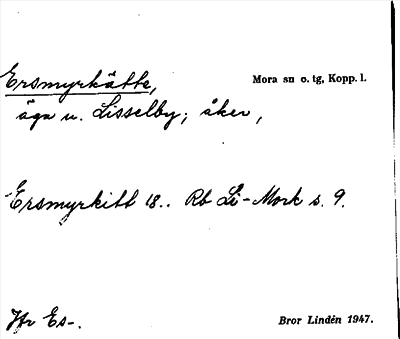 Ersmyrkätte, Mora sn o. tg, Kopp. l.
äga u. Lisselby; åker,
Ersmyrkitt 18.. Rb Li-Mork s. 9.
Jfr Es-. Bror Lindén 1947.